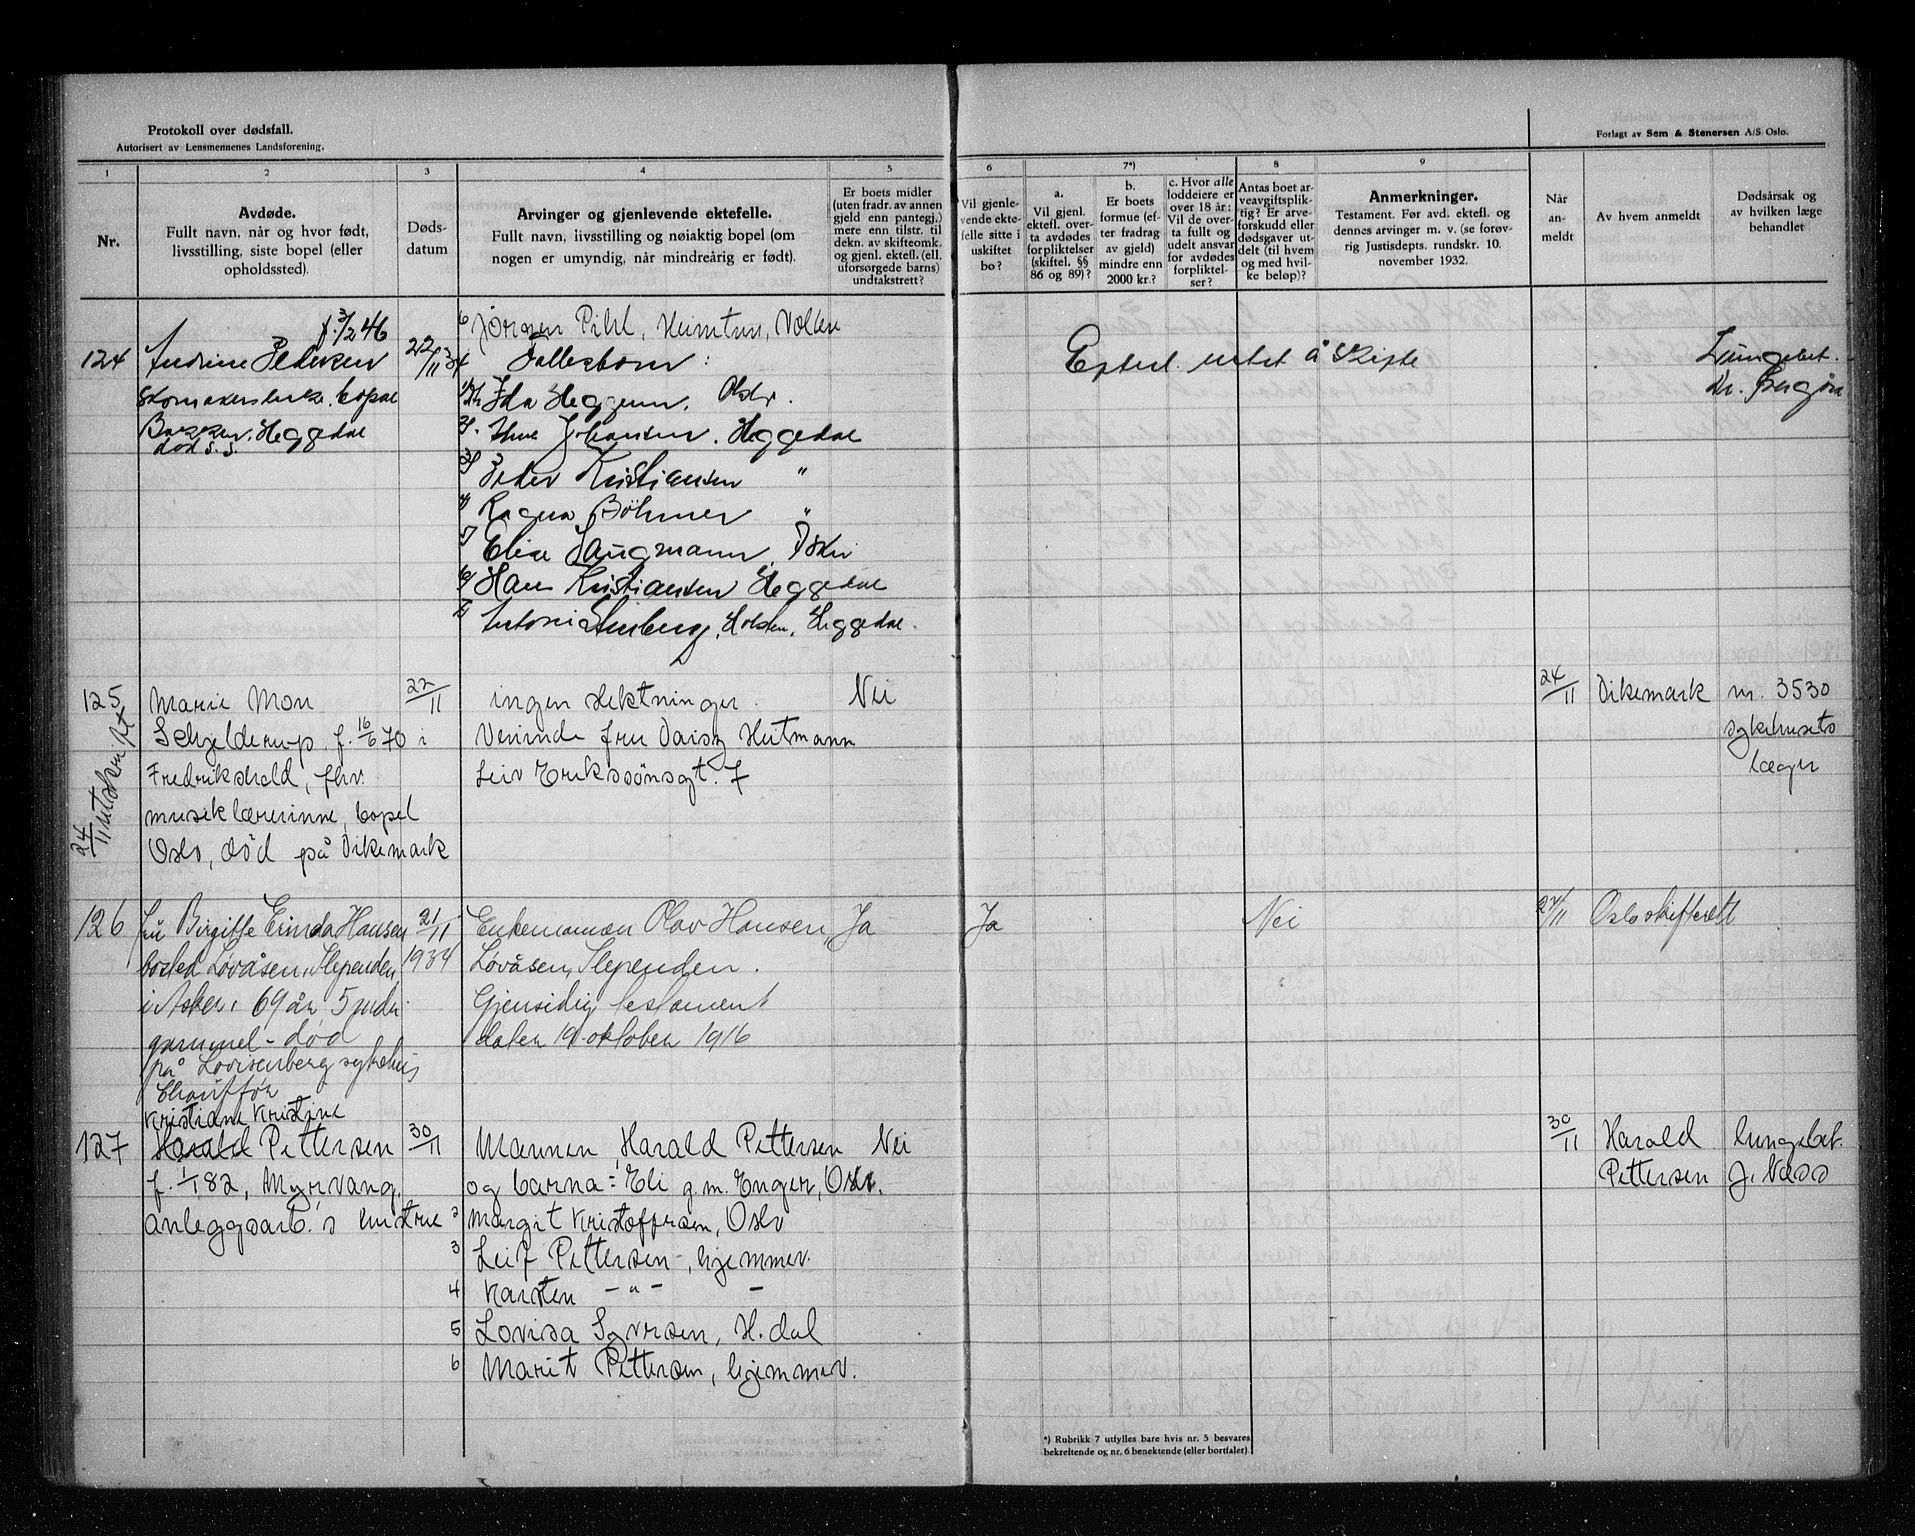 Protokoll over dødsfall.
Autorisert av Lensmennenes Landsforening.
Forlagt av Sem & Stenersen A/S Oslo.
1
Nr.
2
Avdøde.
Fullt navn, når og hvor født,
livsstilling, siste bopel (eller
opholdssted).
3
Døds-
datum
4
Arvinger og gjenlevende ektefelle.
Fullt navn, livsstilling og nøiaktig bopel (om
nogen er umyndig, når mindreårig er født).
5
Er boets midler
(uten fradr. av annen
gjeld enn pantegj.)
mere enn tilstr. til
dekn. av skifteomk.
og gjenl. ektefl. (ell.
uforsørgede barns)
undtakstrett?
6
Vil gjenle-
vende ekte-
felle sitte i
uskiftet
bo?
7*)
a.
Vil gjenl.
ektefl. over-
ta avdødes
forpliktelser
(skiftel. §§
86 og 89)?
b.
Er boets
formue (ef-
ter fradrag
av gjeld)
mindre enn
2000 kr.?
c. Hvor alle
loddeiere er
over 18 år:
Vil de over-
ta fullt og
udelt ansvar
for avdødes
forpliktel-
ser?
8
Antas boet ar-
veavgiftsplik-
tig? Er arve-
forskudd eller
dødsgaver ut-
delt (til hvem
og med hvil-
ke beløp)?
9
Anmerkninger.
Testament. Før avd. ektefl. og
dennes arvinger m. v. (se forøv-
rig Justisdepts. rundskr. 10.
november 1932.
Når
an-
meldt
Av hvem anmeldt
Dødsårsak og
av hvilken læge
behandlet
6 Jørgen Pihl, Heimtun, Vollen
f. 3/2 46
124 Andrine Pedersen 22/11 34
Skomakerenke, bopæl
Bakken, Heggedal
død s. s.
Fellesbarn:
1/ Ida Heggum, Oslo.
2/ Thne Johansen, Heggedal
3/ Peder Kristiansen "
4/ Ragna Böhmer "
5/ Elise Saugmann,
6/ Hans Kristiansen Heggedal
7/ Antoni Stenberg, Holsten, Heggedal.
Efterl. rettet å skifte
Lungebet.
Dr.
125 Marie Mon 22/11 ingen slektninger. Nei 24/11 Dikemark nr. 3530
Schjelderup f. 16/6 70 i Veninde fru Daisy Heitmann sykehusets
Fredrikshald, fhv. Leiv Erikssønsgt. 7 læger
musiklærerinne, bopel
Oslo, død på Dikemark
24/11 utskrift
126 fru Birgitte Erinda Hansen 21/11 Enkemannen Olav Hansen, Ja Ja Nei 27/11 Oslo skifterett
bosted Løvåsen, Slependen 1934 Løvåsen, Slependen.
i Asker, 69 år 5 mdr. Gjensidig testament
gammel - død datert 19 oktober 1916
på Lovisenberg sykehus
Chauffør
Kristiane Kristine
127 Harald Pettersen 30/11 Mannen, Harald Pettersen Nei 30/11 Harald lungebet.
f. 1/1 82, Myrvang, og barna: Eli g.m. Enger, Oslo. Pettersen J. Næss
anleggsarb.s hustrue 2 Margit Kristoffersen, Oslo
3 Leif Pettersen -, hjemmev.
4 Karsten - " - -
5 Lovisa Syversen, H.dal
6 Marit Pettersen, hjemmev.
*) Rubrikk 7 utfylles bare hvis nr. 5 besvares
bekreftende og nr. 6 benektende (eller bortfaller)